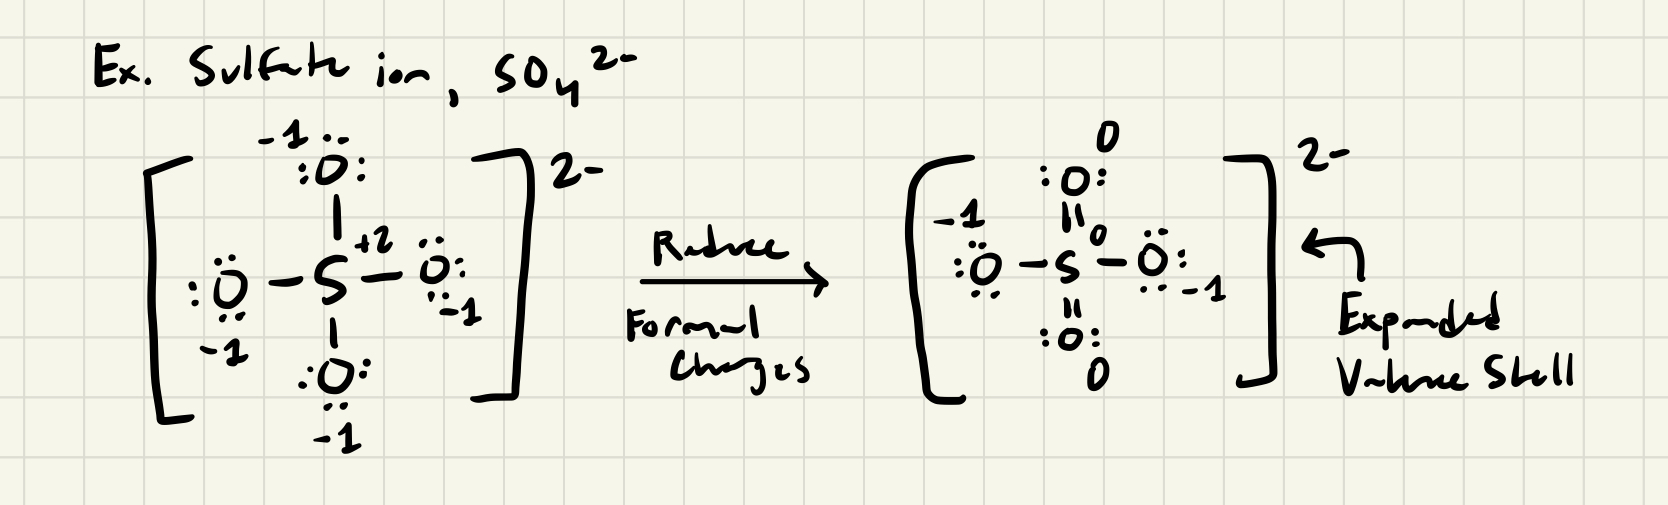 Ex. Sulfate ion, SO₄²⁻
-1
:O:
2-
+2
:O - S - O:
-1
-1
:O:
-1
Reduce
Formal
Charges
0
:O:
2-
-1
0
:O - S - O:
-1
:O:
0
Expanded
Valence Shell